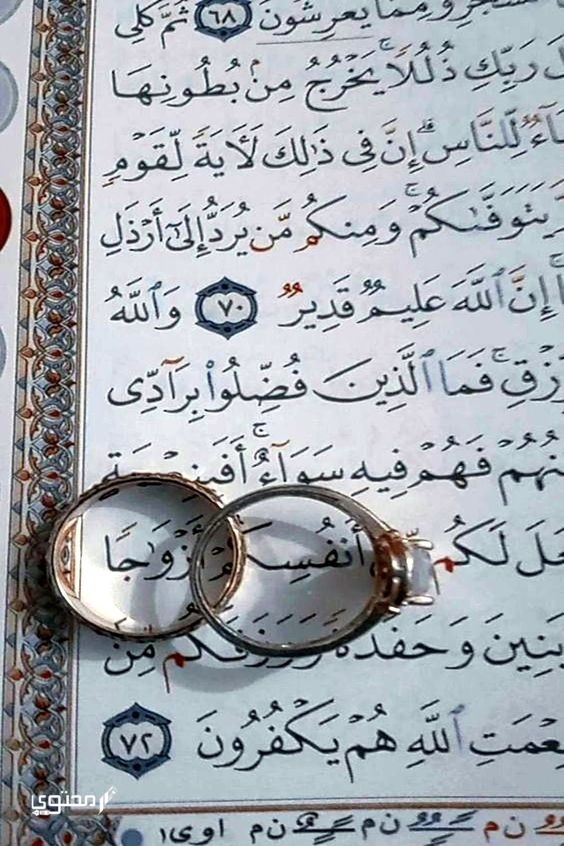 يَعْرِشُونَ ٦٨ ثُمَّ كُلِى
رَبِّكِ ذُلُلًا ۚ يَخْرُجُ مِنۢ بُطُونِهَا
لِّلنَّاسِ ۗ إِنَّ فِى ذَٰلِكَ لَـَٔايَةً لِّقَوْمٍ
يَتَوَفَّىٰكُمْ ۚ وَمِنكُم مَّن يُرَدُّ إِلَىٰٓ أَرْذَلِ
إِنَّ ٱللَّهَ عَلِيمٌ قَدِيرٌ ٧٠ وَٱللَّهُ
فَمَا ٱلَّذِينَ فُضِّلُوا۟ بِرَآدِّى
فَهُمْ فِيهِ سَوَآءٌ ۚ
لَكُم أَنفُسِكُمْ أَزْوَٰجًا
بَنِينَ وَحَفَدَةً وَرَزَقَكُم مِّنَ
ٱللَّهِ هُمْ يَكْفُرُونَ ٧٢
محتوى